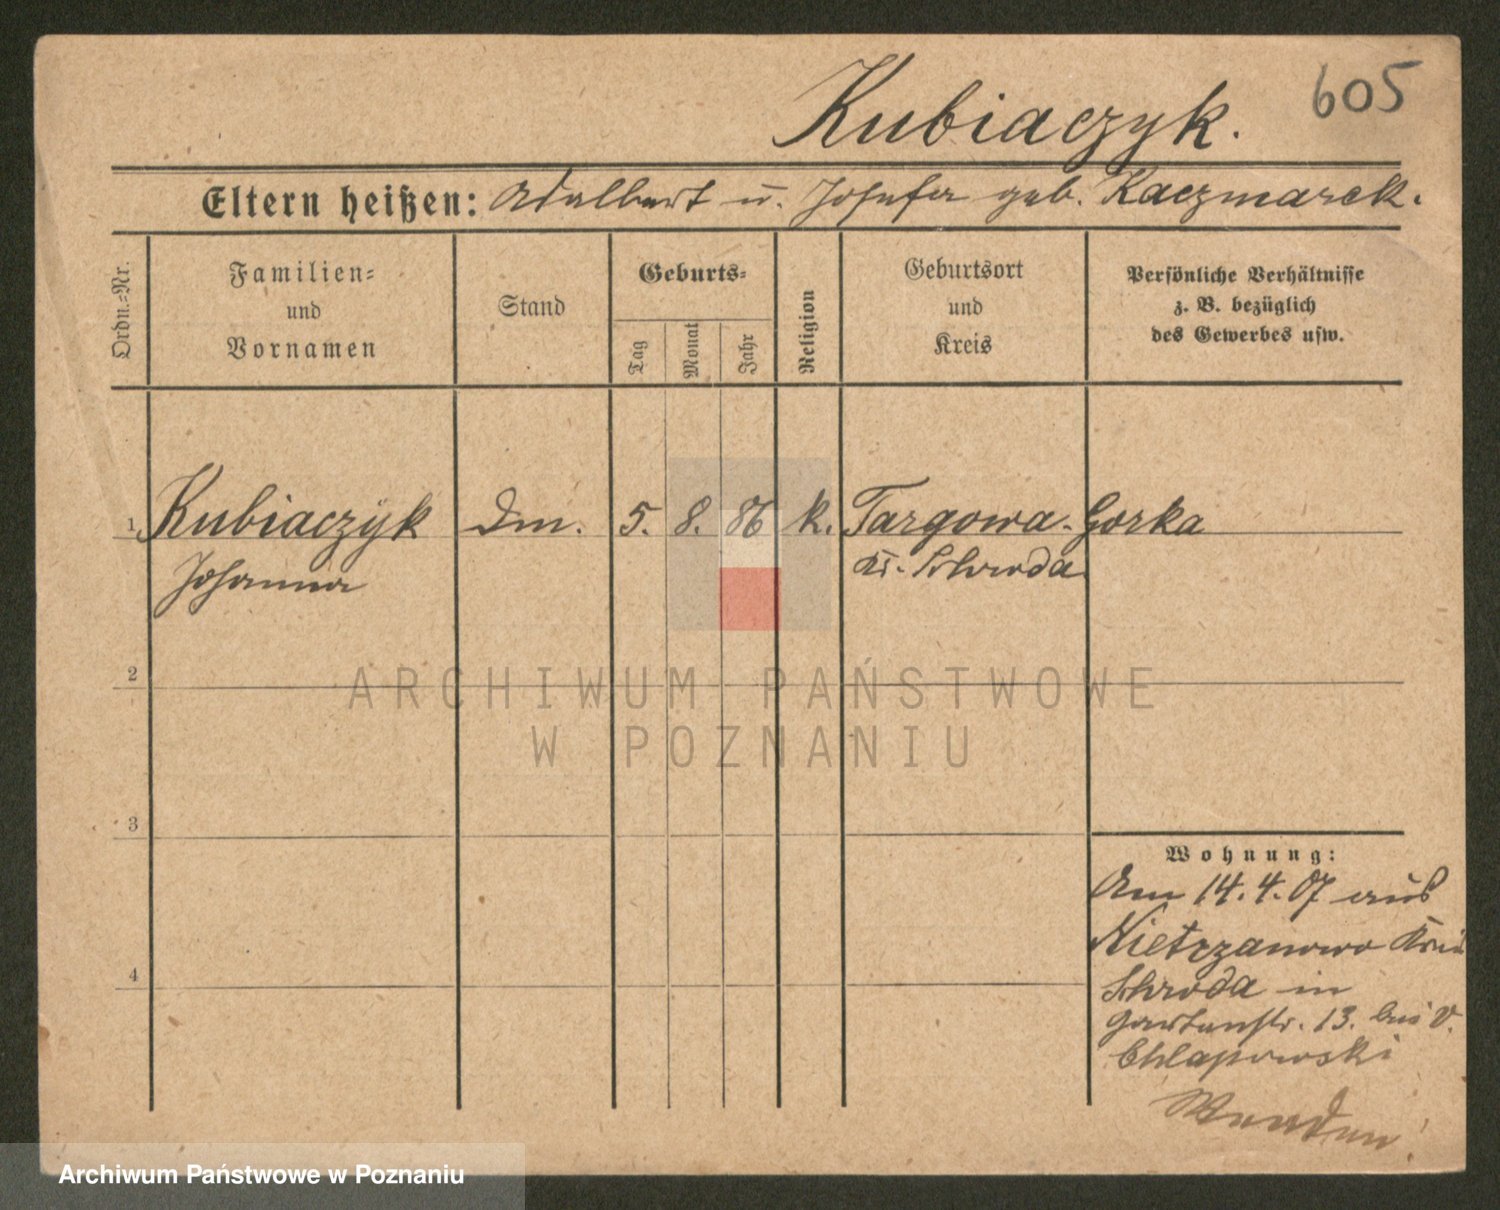 605
Kubiaczyk.
Eltern heißen: Adalbert u. Josefa geb. Kaczmarek.
Ordn.=Nr.
Familien=
und
Vornamen
Stand
Geburts=
Tag
Monat
Jahr
Religion
Geburtsort
und
Kreis
Persönliche Verhältnisse
z. B. bezüglich
des Gewerbes usw.
1 Kubiaczyk Dm. 5. 8. 86 k. Targowa-Gorka
Johanna Kr. Schroda
2
3
4
Wohnung:
Am 14.4.07 aus
Nietrzanowo Kreis
Schroda in
Gartenstr. 13. bei v.
Chlapowski
ARCHIWUM PAŃSTWOWE
W POZNANIU
Archiwum Państwowe w Poznaniu